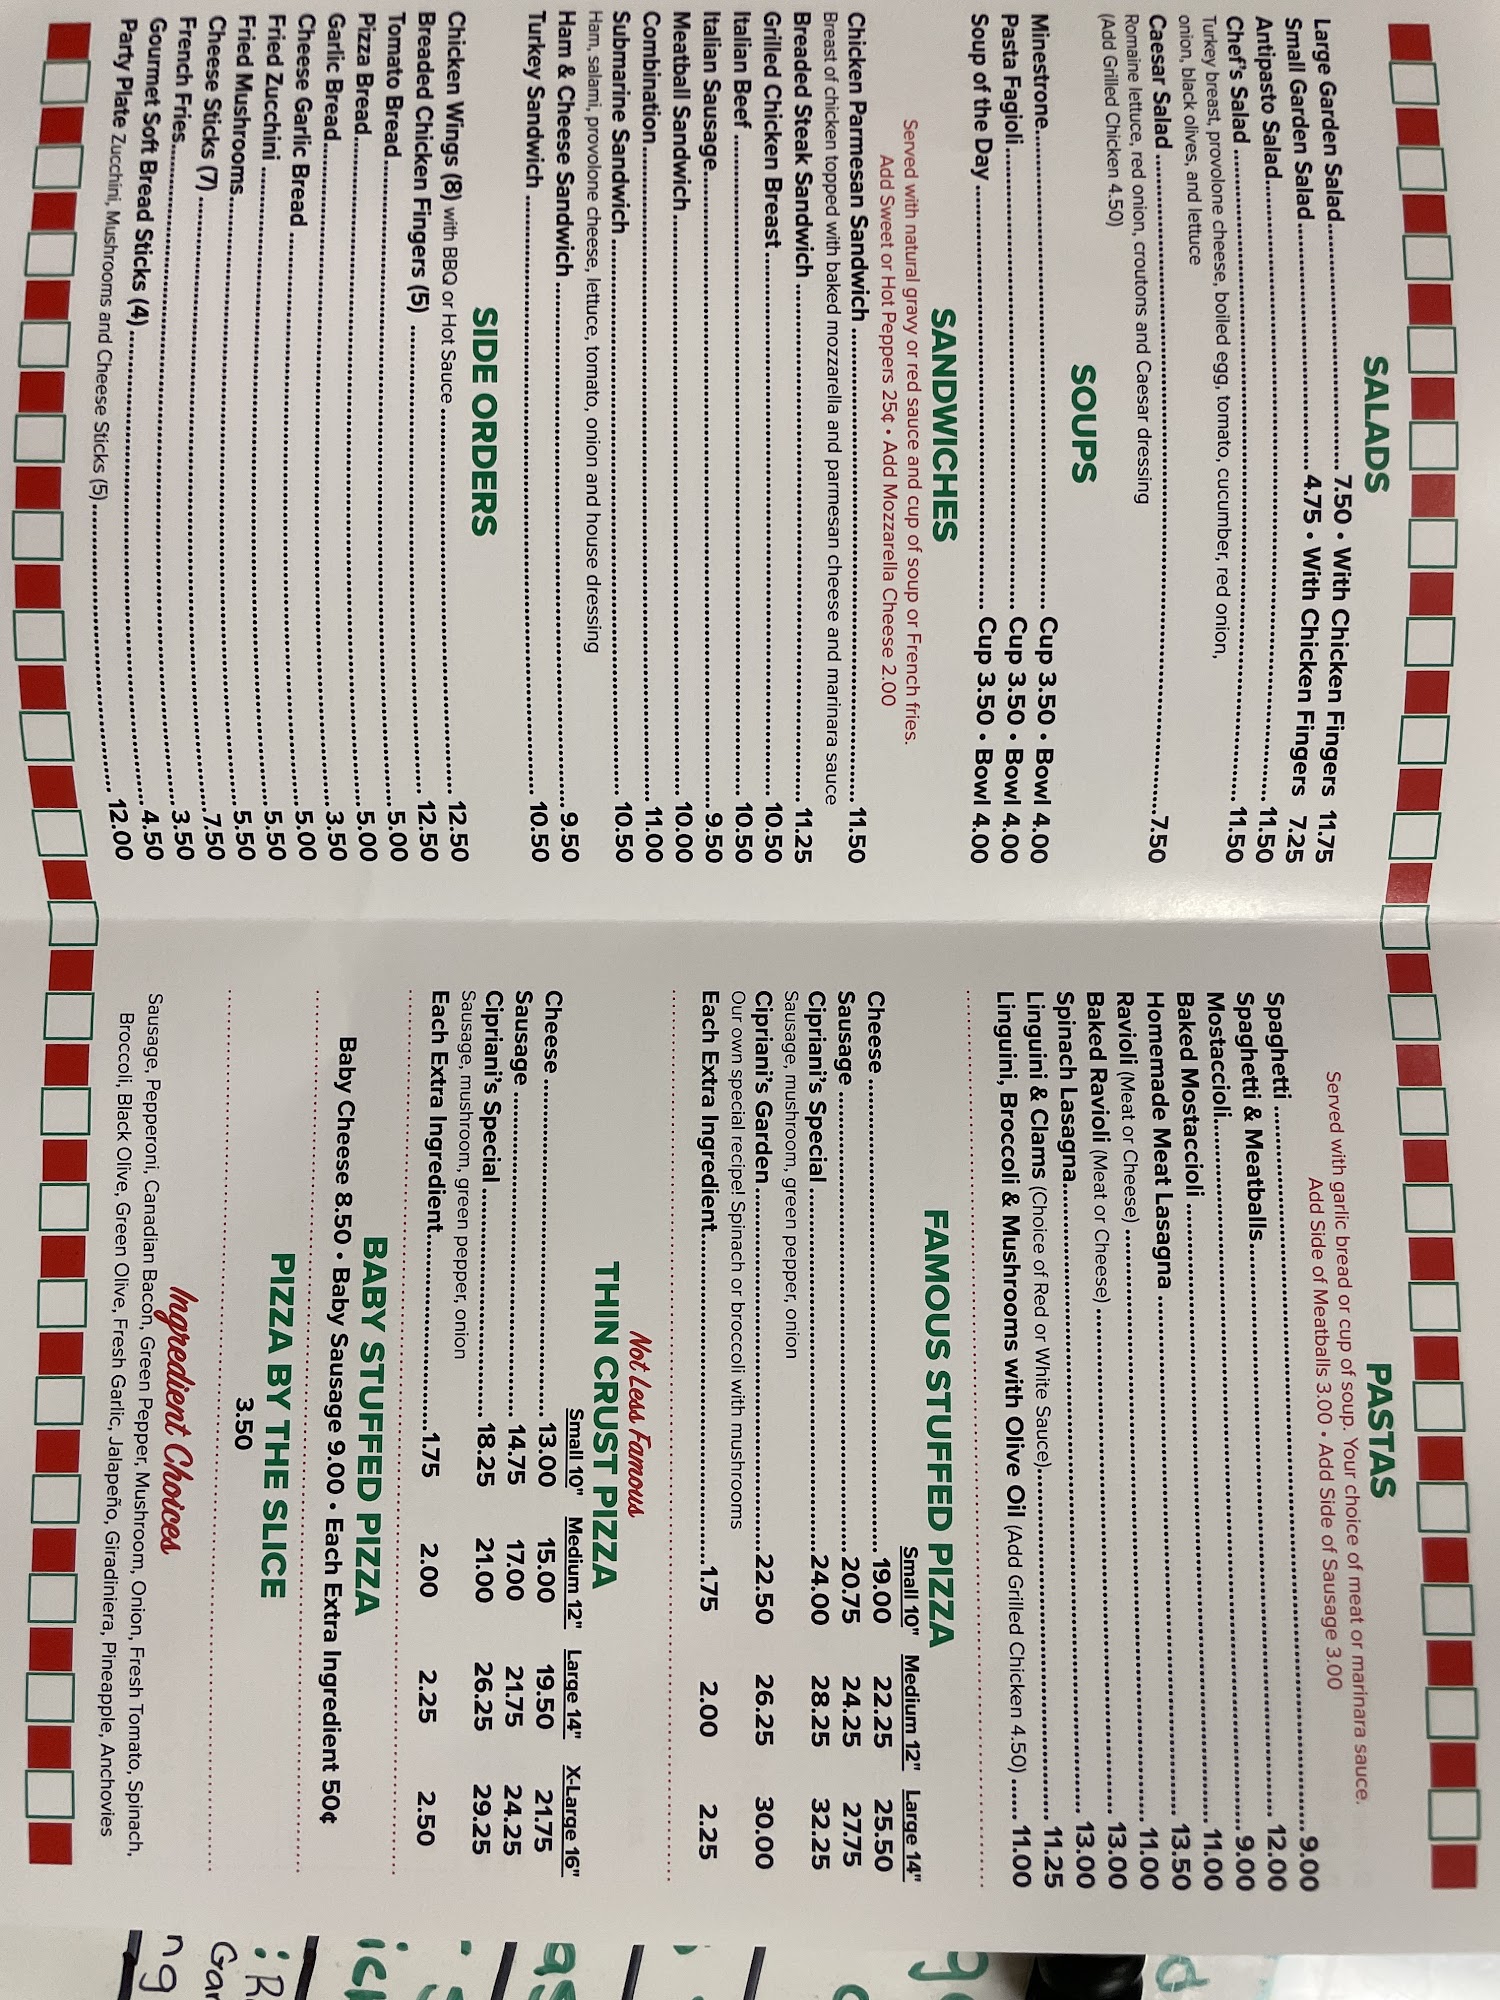 SALADS
Large Garden Salad.......... 7.50 • With Chicken Fingers 11.75
Small Garden Salad.......... 4.75 • With Chicken Fingers 7.25
Antipasto Salad.......... 11.50
Chef's Salad .......... 11.50
Turkey breast, provolone cheese, boiled egg, tomato, cucumber, red onion,
onion, black olives, and lettuce
Caesar Salad ..........7.50
Romaine lettuce, red onion, croutons and Caesar dressing
(Add Grilled Chicken 4.50)
SOUPS
Minestrone.......... Cup 3.50 • Bowl 4.00
Pasta Fagioli.......... Cup 3.50 • Bowl 4.00
Soup of the Day .......... Cup 3.50 • Bowl 4.00
SANDWICHES
Served with natural gravy or red sauce and cup of soup or French fries.
Add Sweet or Hot Peppers 25¢ • Add Mozzarella Cheese 2.00
Chicken Parmesan Sandwich .......... 11.50
Breast of chicken topped with baked mozzarella and parmesan cheese and marinara sauce
Breaded Steak Sandwich .......... 11.25
Grilled Chicken Breast .......... 10.50
Italian Beef .......... 10.50
Italian Sausage.......... 9.50
Meatball Sandwich.......... 10.00
Combination.......... 11.00
Submarine Sandwich .......... 10.50
Ham, salami, provolone cheese, lettuce, tomato, onion and house dressing
Ham & Cheese Sandwich .......... 9.50
Turkey Sandwich .......... 10.50
SIDE ORDERS
Chicken Wings (8) with BBQ or Hot Sauce .......... 12.50
Breaded Chicken Fingers (5) .......... 12.50
Tomato Bread.......... 5.00
Pizza Bread.......... 5.00
Garlic Bread.......... 3.50
Cheese Garlic Bread .......... 5.00
Fried Zucchini .......... 5.50
Fried Mushrooms.......... 5.50
Cheese Sticks (7) ..........7.50
French Fries.......... 3.50
Gourmet Soft Bread Sticks (4).......... 4.50
Party Plate Zucchini, Mushrooms and Cheese Sticks (5).......... 12.00
PASTAS
Served with garlic bread or cup of soup. Your choice of meat or marinara sauce.
Add Side of Meatballs 3.00 • Add Side of Sausage 3.00
Spaghetti .......... 9.00
Spaghetti & Meatballs.......... 12.00
Mostaccioli.......... 9.00
Baked Mostaccioli .......... 11.00
Homemade Meat Lasagna .......... 13.50
Ravioli (Meat or Cheese) .......... 11.00
Baked Ravioli (Meat or Cheese) .......... 13.00
Spinach Lasagna.......... 13.00
Linguini & Clams (Choice of Red or White Sauce).......... 11.25
Linguini, Broccoli & Mushrooms with Olive Oil (Add Grilled Chicken 4.50) ...... 11.00
FAMOUS STUFFED PIZZA
Small 10" Medium 12" Large 14"
Cheese .......... 19.00 22.25 25.50
Sausage .......... 20.75 24.25 27.75
Cipriani's Special ..........24.00 28.25 32.25
Sausage, mushroom, green pepper, onion
Cipriani's Garden ..........22.50 26.25 30.00
Our own special recipe! Spinach or broccoli with mushrooms
Each Extra Ingredient..........1.75 2.00 2.25
Not Less Famous
THIN CRUST PIZZA
Small 10" Medium 12" Large 14" X-Large 16"
Cheese .......... 13.00 15.00 19.50 21.75
Sausage .......... 14.75 17.00 21.75 24.25
Cipriani's Special .......... 18.25 21.00 26.25 29.25
Sausage, mushroom, green pepper, onion
Each Extra Ingredient..........1.75 2.00 2.25 2.50
BABY STUFFED PIZZA
Baby Cheese 8.50 • Baby Sausage 9.00 • Each Extra Ingredient 50¢
PIZZA BY THE SLICE
3.50
Ingredient Choices
Sausage, Pepperoni, Canadian Bacon, Green Pepper, Mushroom, Onion, Fresh Tomato, Spinach,
Broccoli, Black Olive, Green Olive, Fresh Garlic, Jalapeño, Giradiniera, Pineapple, Anchovies